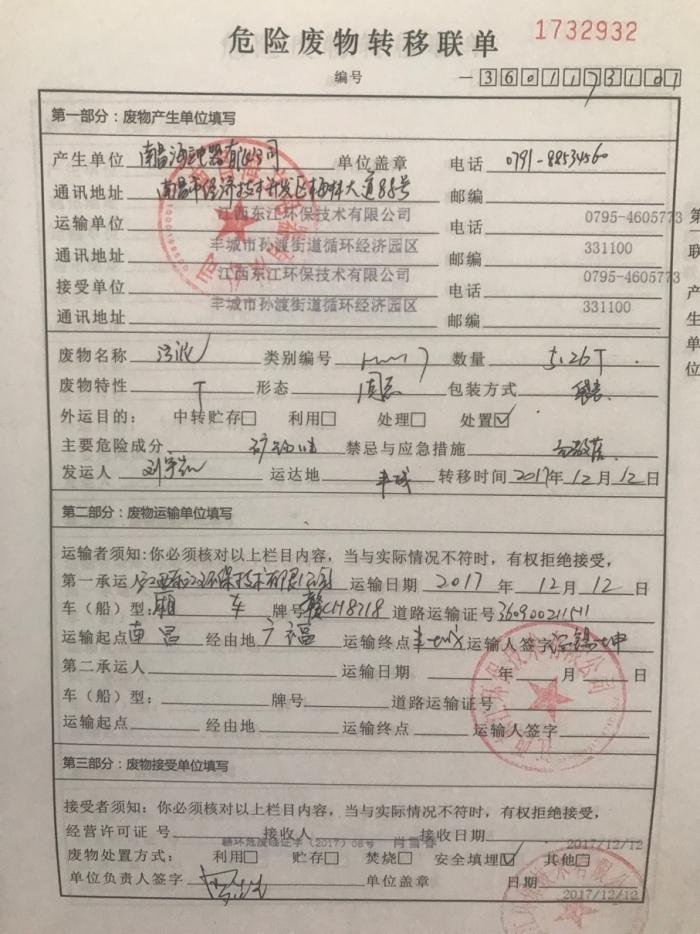 危险废物转移联单 1732932
编号
第一部分：废物产生单位填写
产生单位 单位盖章 电话 0791-88534560
通讯地址 南昌市经济技术开发区梅林大道88号 邮编
运输单位 江西东江环保技术有限公司 电话 0795-4605773
通讯地址 丰城市孙渡街道循环经济园区 邮编 331100
接受单位 江西东江环保技术有限公司 电话 0795-4605773
通讯地址 丰城市孙渡街道循环经济园区 邮编 331100
第 联 产生单位
废物名称 类别编号 数量 5.26T
废物特性 T 形态 固态 包装方式
外运目的： 中转贮存□ 利用□ 处理□ 处置☑
主要危险成分 矿物油 禁忌与应急措施
发运人 运达地 丰城 转移时间 2017年12月12日
第二部分：废物运输单位填写
运输者须知：你必须核对以上栏目内容，当与实际情况不符时，有权拒绝接受，
第一承运人 江西东江环保技术有限公司 运输日期 2017 年 12 月 12 日
车（船）型：厢 车 牌号 赣CH8718 道路运输证号
运输起点 南昌 经由地 广福 运输终点 运输人签字
第二承运人 运输日期 年 月 日
车（船）型： 牌号 道路运输证号
运输起点 经由地 运输终点 运输人签字
第三部分：废物接受单位填写
接受者须知：你必须核对以上栏目内容，当与实际情况不符时，有权拒绝接受，
经营许可证 号 接收人 接收日期
赣环危废临证字（2017）08号 肖雪春 2017/12/12
废物处置方式： 利用□ 贮存□ 焚烧□ 安全填埋☑ 其他□
单位负责人签字 单位盖章 日期 2017/12/12